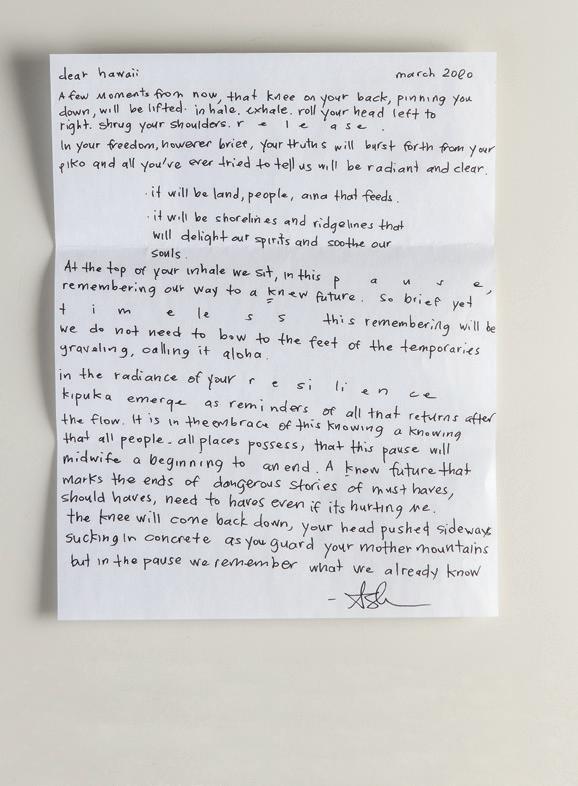 dear hawaii march 2020
A few moments from now, that knee on your back, pinning you
down, will be lifted. inhale. exhale. roll your head left to
right. shrug your shoulders. r e l e a s e .
In your freedom, however brief, your truths will burst forth from your
piko and all you've ever tried to tell us will be radiant and clear.
· it will be land, people, aina that feeds.
· it will be shorelines and ridgelines that
will delight our spirits and soothe our
souls.
At the top of your inhale we sit, in this p a u s e,
remembering our way to a knew future. so brief yet
t i m e l e s s this remembering will be
we do not need to bow to the feet of the temporaries
graveling, calling it aloha.
in the radiance of your r e s i l i e n c e
kipuka emerge as reminders of all that returns after
the flow. It is in the embrace of this knowing a knowing
that all people - all places possess, that this pause will
midwife a beginning to an end. A knew future that
marks the ends of dangerous stories of must haves,
should haves, need to haves even if its hurting me.
the knee will come back down, your head pushed sideways
sucking in concrete as you guard your mother mountains
but in the pause we remember what we already know
- Ash